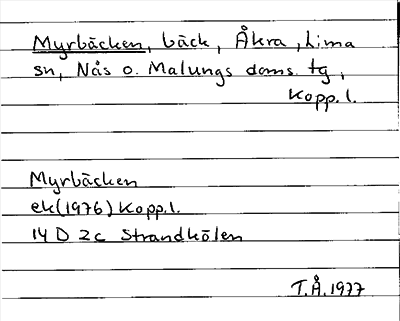 Myrbäcken, bäck, Åkra, Lima
sn, Nås o. Malungs doms. tg,
Kopp.l.
Myrbäcken
ek(1976) Kopp.l.
14 D 2c Strandkölen
T.Å.1977